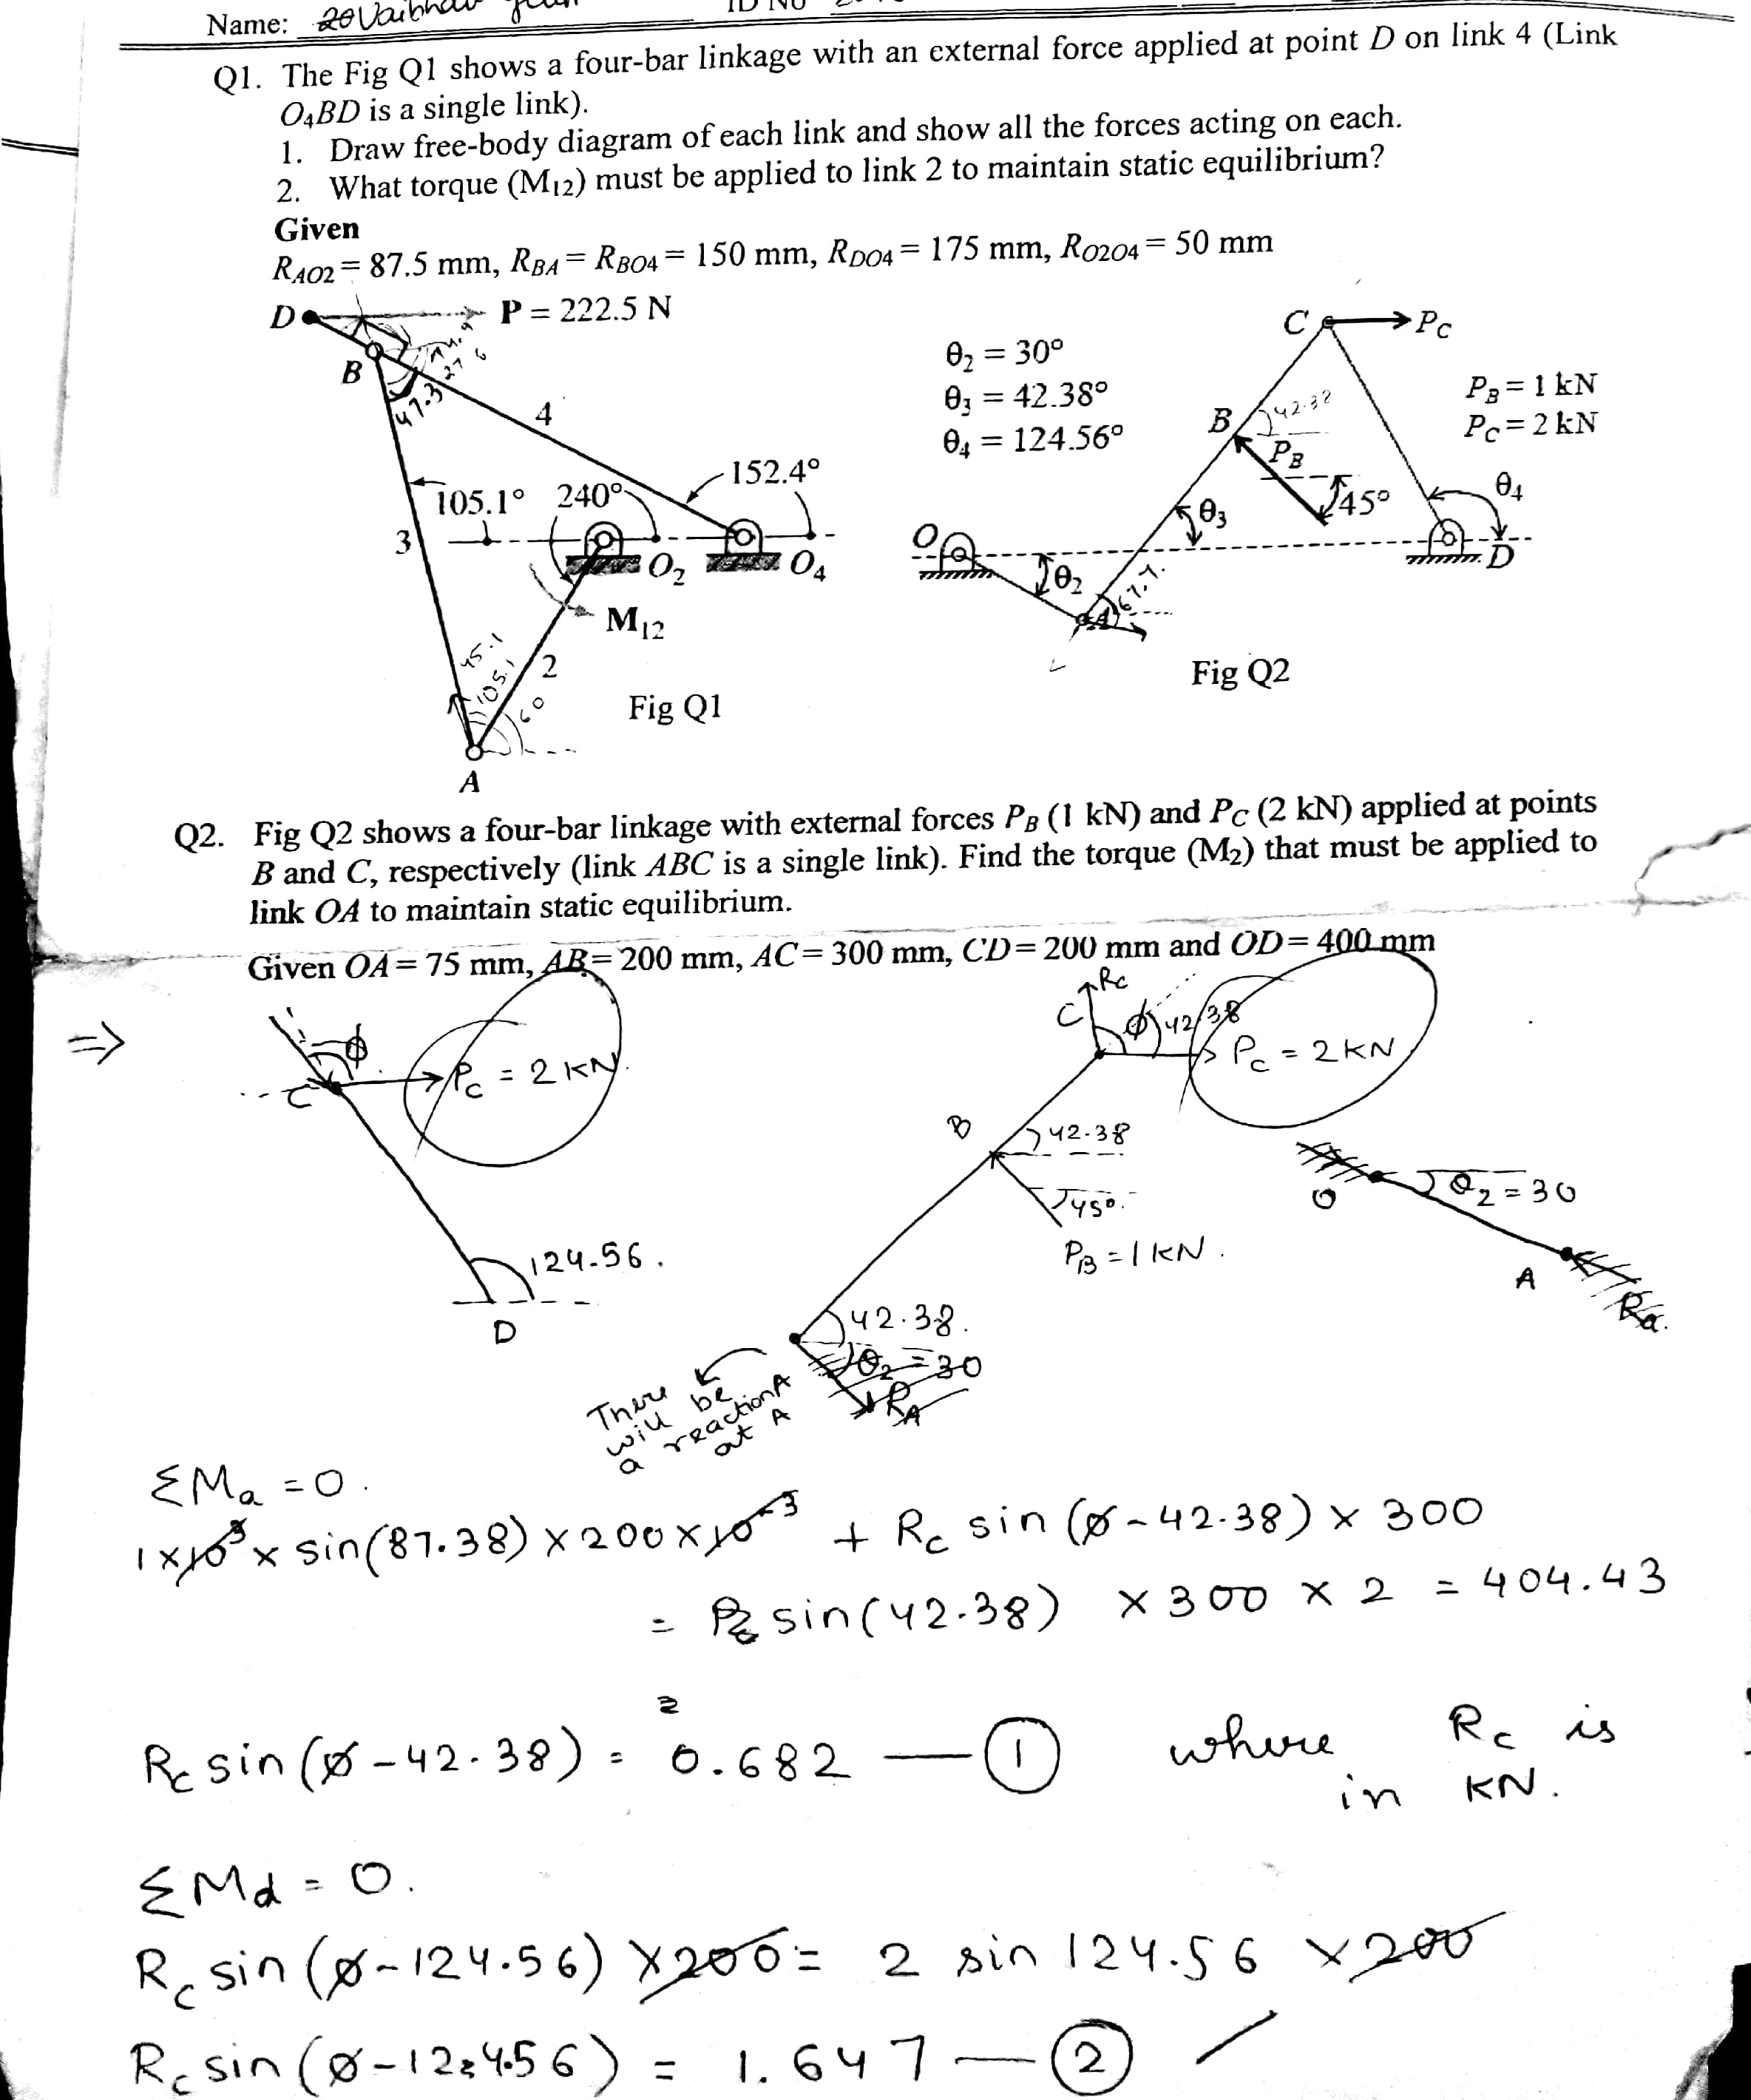 Name: 20 Vaibhav
Q1. The Fig Q1 shows a four-bar linkage with an external force applied at point D on link 4 (Link
O4BD is a single link).
1. Draw free-body diagram of each link and show all the forces acting on each.
2. What torque (M12) must be applied to link 2 to maintain static equilibrium?
Given
RAO2 = 87.5 mm, RBA = RBO4 = 150 mm, RDO4 = 175 mm, RO2O4 = 50 mm
D
P = 222.5 N
B
47.3
27.6
4
152.4°
105.1° 240°
3
O2
O4
M12
45.1
105.1
60
2
Fig Q1
A
θ2 = 30°
θ3 = 42.38°
θ4 = 124.56°
C
PC
PB = 1 kN
PC = 2 kN
B
42.38
PB
45°
θ4
θ3
O
D
θ2
67.7
A
Fig Q2
Q2. Fig Q2 shows a four-bar linkage with external forces PB (1 kN) and PC (2 kN) applied at points
B and C, respectively (link ABC is a single link). Find the torque (M2) that must be applied to
link OA to maintain static equilibrium.
Given OA = 75 mm, AB = 200 mm, AC = 300 mm, CD = 200 mm and OD = 400 mm
⇒
ϕ
C
Pc = 2 KN.
124.56.
D
Rc
C
ϕ
42.38
Pc = 2 KN
B
42.38
45°.
PB = 1 KN.
42.38.
θ2 = 30
RA
There will be a reaction at A
O
θ2 = 30
A
Ra.
ΣMa = 0.
1 x 10³ x sin(87.38) x 200 x 10⁻³ + Rc sin (ϕ - 42.38) x 300
= Pc sin(42.38) x 300 x 2 = 404.43
Rc sin (ϕ - 42.38) = 0.682 — ① where Rc is
in KN.
ΣMd = 0.
Rc sin (ϕ - 124.56) x 200 = 2 sin 124.56 x 200
Rc sin (ϕ - 124.56) = 1.647 — ②